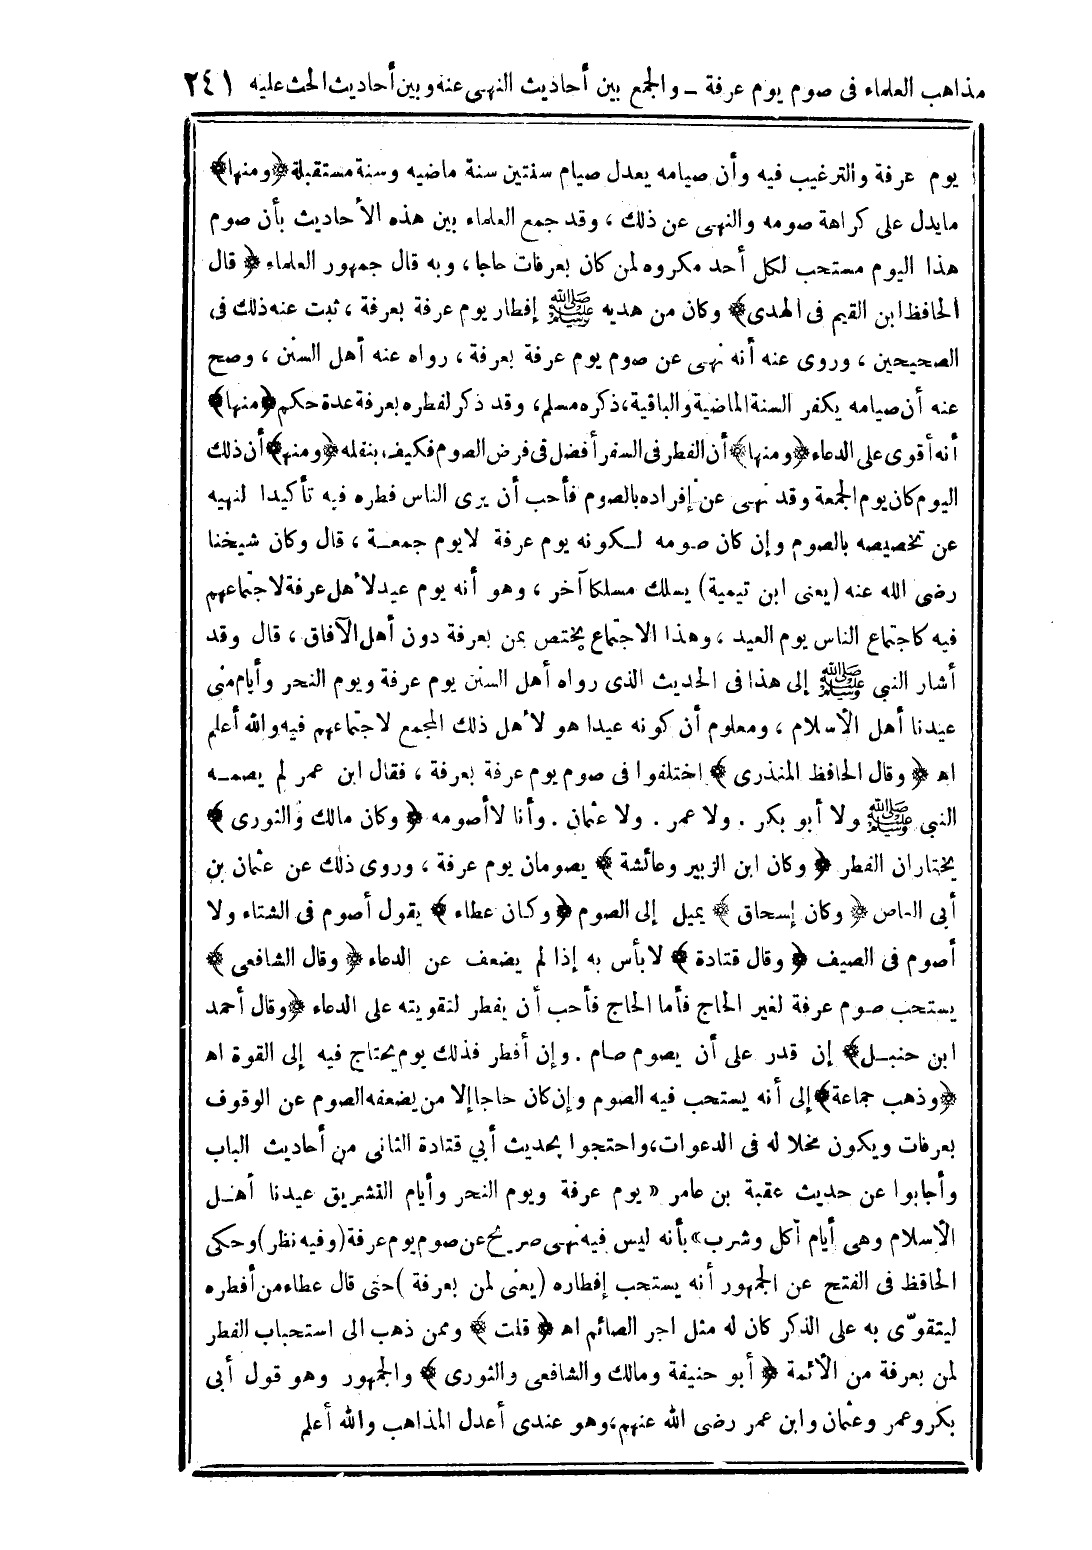 مذاهب العلماء فى صوم يوم عرفة – والجمع بين أحاديث النهى عنه وبين أحاديث الحث عليه ٢٤١
يوم عرفة والترغيب فيه وأن صيامه يعدل صيام سنتين سنة ماضيه وسنة مستقبلة ﴿ومنها﴾
مايدل على كراهة صومه والنهى عن ذلك ، وقد جمع العلماء بين هذه الأحاديث بأن صوم
هذا اليوم مستحب لكل أحد مكروه لمن كان بعرفات حاجا ، وبه قال جمهور العلماء ﴿ قال
الحافظ ابن القيم فى الهدى﴾ وكان من هديه ﷺ إفطار يوم عرفة بعرفة ، ثبت عنه ذلك فى
الصحيحين ، وروى عنه أنه نهى عن صوم يوم عرفة بعرفة ، رواه عنه أهل السنن ، وصح
عنه أن صيامه يكفر السنة الماضية والباقية ، ذكره مسلم ، وقد ذكر لفطره بعرفة عدة حكم ﴿منها﴾
أنه أقوى على الدعاء ﴿ومنها﴾ أن الفطر فى السفر أفضل فى فرض الصوم فكيف بنفله ﴿ومنها﴾ أن ذلك
اليوم كان يوم الجمعة وقد نهى عن إفراده بالصوم فأحب أن يرى الناس فطره فيه تأكيدا لنهيه
عن تخصيصه بالصوم وإن كان صومه لكونه يوم عرفة لايوم جمعة ، قال وكان شيخنا
رضى الله عنه (يعنى ابن تيمية) يسلك مسلكا آخر ، وهو أنه يوم عيد لأهل عرفة لاجتماعهم
فيه كاجتماع الناس يوم العيد ، وهذا الاجتماع يختص بمن بعرفة دون أهل الآفاق ، قال وقد
أشار النبي ﷺ إلى هذا فى الحديث الذى رواه أهل السنن يوم عرفة ويوم النحر وأيام منى
عيدنا أهل الأسلام ، ومعلوم أن كونه عيدا هو لأهل ذلك المجمع لاجتماعهم فيه والله أعلم
اه ﴿ وقال الحافظ المنذرى ﴾ اختلفوا فى صوم يوم عرفة بعرفة ، فقال ابن عمر لم يصمه
النبي ﷺ ولا أبو بكر . ولا عمر . ولا عثمان . وأنا لاأصومه ﴿ وكان مالك والثورى ﴾
يختاران الفطر ﴿ وكان ابن الزبير وعائشة ﴾ يصومان يوم عرفة ، وروى ذلك عن عثمان بن
أبى العاص ﴿ وكان إسحاق ﴾ يميل إلى الصوم ﴿ وكان عطاء ﴾ يقول أصوم فى الشتاء ولا
أصوم فى الصيف ﴿ وقال قتادة ﴾ لابأس به إذا لم يضعف عن الدعاء ﴿ وقال الشافعى ﴾
يستحب صوم عرفة لغير الحاج فأما الحاج فأحب أن يفطر لتقويته على الدعاء ﴿وقال أحمد
ابن حنبل﴾ إن قدر على أن يصوم صام . وإن أفطر فذلك يوم يحتاج فيه إلى القوة اه
﴿وذهب جماعة﴾ إلى أنه يستحب فيه الصوم وإن كان حاجا إلا من يضعفه الصوم عن الوقوف
بعرفات ويكون مخلا له فى الدعوات ، واحتجوا بحديث أبي قتادة الثانى من أحاديث الباب
وأجابوا عن حديث عقبة بن عامر « يوم عرفة ويوم النحر وأيام التشريق عيدنا أهل
الأسلام وهى أيام أكل وشرب» بأنه ليس فيه نهى صريح عن صوم يوم عرفة (وفيه نظر) وحكى
الحافظ فى الفتح عن الجمهور أنه يستحب إفطاره (يعنى لمن بعرفة ) حتى قال عطاء من أفطره
ليتقوّى به على الذكر كان له مثل اجر الصائم اه ﴿ قلت ﴾ وممن ذهب الى استحباب الفطر
لمن بعرفة من الأئمة ﴿ أبو حنيفة ومالك والشافعى والثورى ﴾ والجمهور وهو قول أبى
بكر وعمر وعثمان وابن عمر رضى الله عنهم ، وهو عندى أعدل المذاهب والله أعلم